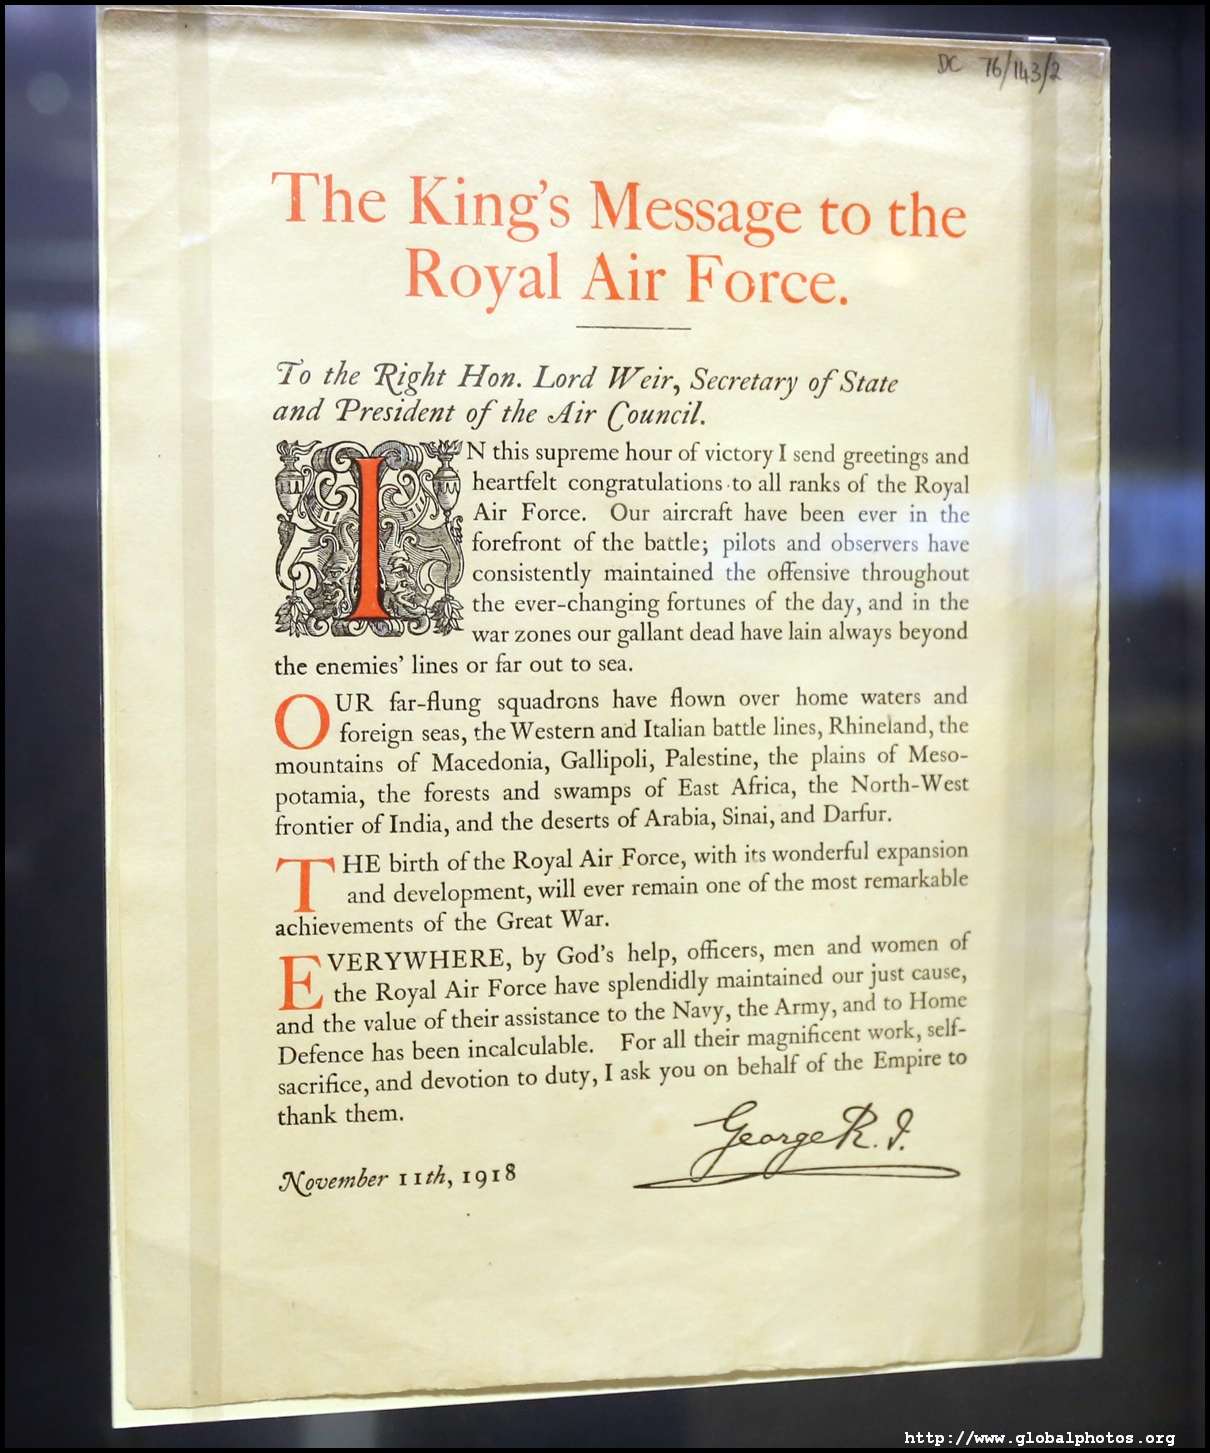 DC 76/143/2
The King's Message to the
Royal Air Force.
To the Right Hon. Lord Weir, Secretary of State
and President of the Air Council.
IN this supreme hour of victory I send greetings and
heartfelt congratulations to all ranks of the Royal
Air Force. Our aircraft have been ever in the
forefront of the battle; pilots and observers have
consistently maintained the offensive throughout
the ever-changing fortunes of the day, and in the
war zones our gallant dead have lain always beyond
the enemies' lines or far out to sea.
OUR far-flung squadrons have flown over home waters and
foreign seas, the Western and Italian battle lines, Rhineland, the
mountains of Macedonia, Gallipoli, Palestine, the plains of Meso-
potamia, the forests and swamps of East Africa, the North-West
frontier of India, and the deserts of Arabia, Sinai, and Darfur.
THE birth of the Royal Air Force, with its wonderful expansion
and development, will ever remain one of the most remarkable
achievements of the Great War.
EVERYWHERE, by God's help, officers, men and women of
the Royal Air Force have splendidly maintained our just cause,
and the value of their assistance to the Navy, the Army, and to Home
Defence has been incalculable. For all their magnificent work, self-
sacrifice, and devotion to duty, I ask you on behalf of the Empire to
thank them.
George R. I.
November 11th, 1918
http://www.globalphotos.org